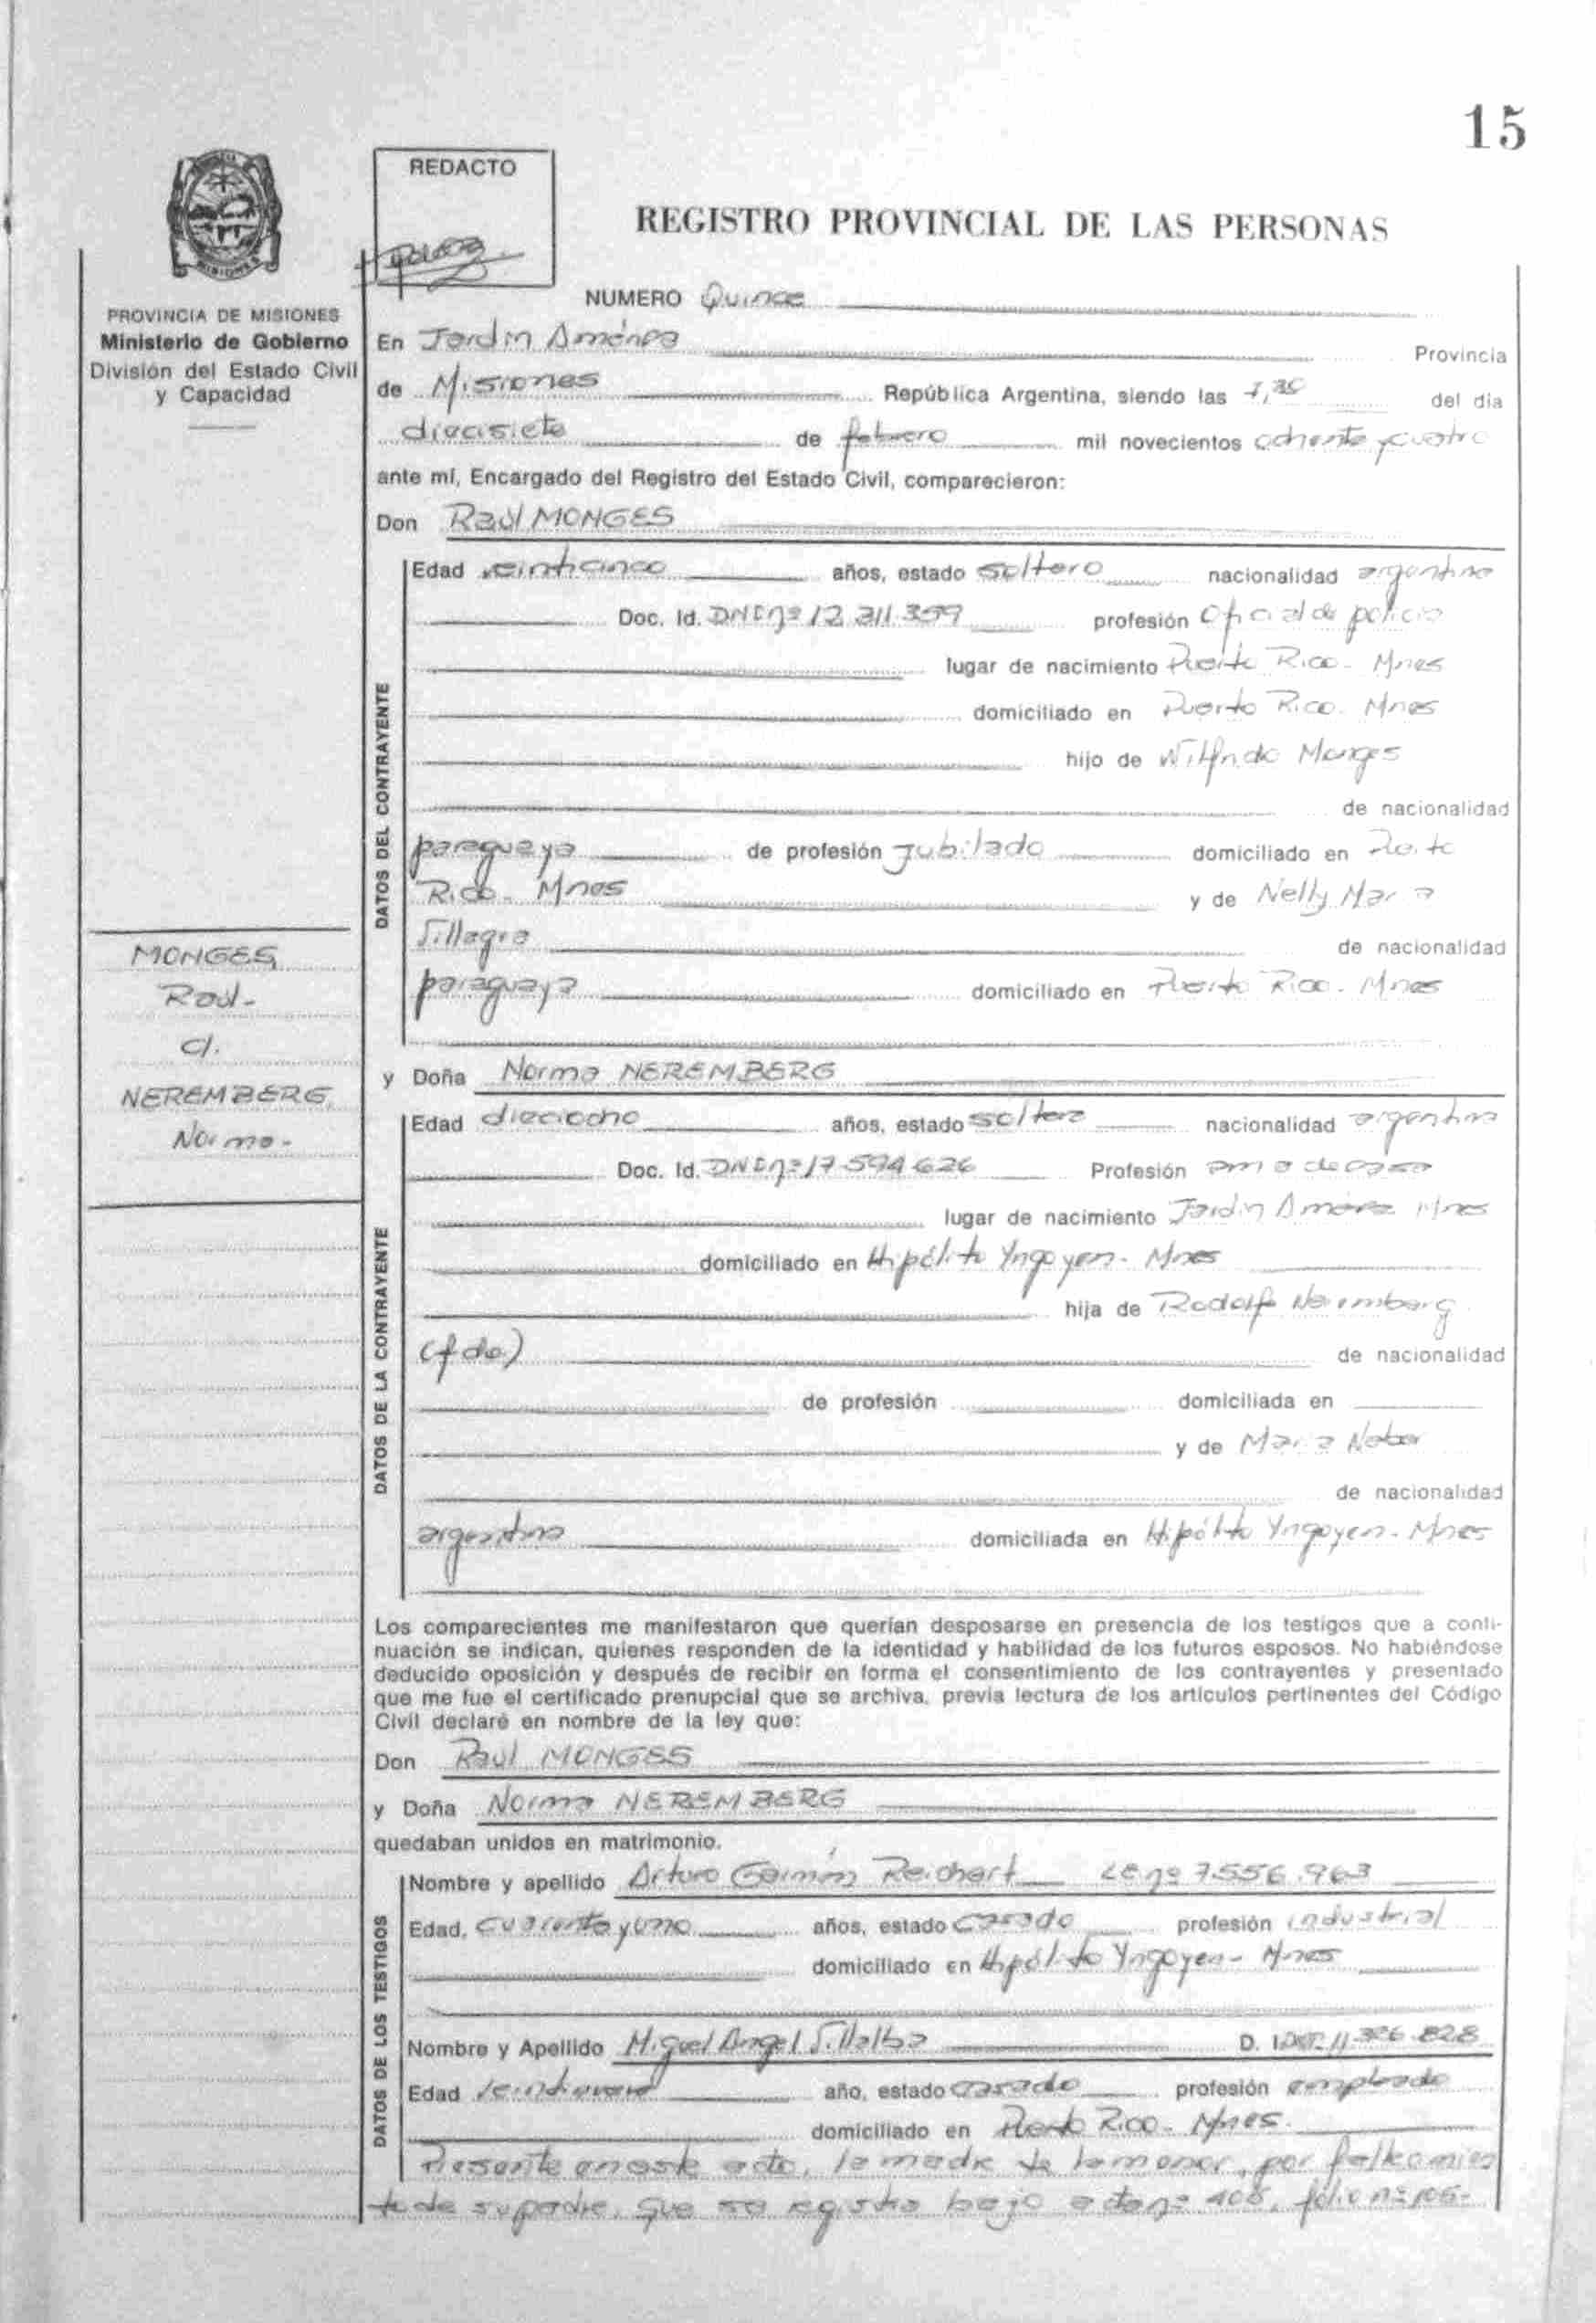 15
REDACTO
REGISTRO PROVINCIAL DE LAS PERSONAS
MISIONES
PROVINCIA DE MISIONES
Ministerio de Gobierno
División del Estado Civil
y Capacidad
NUMERO Quince
En Jardin América Provincia
de Misiones República Argentina, siendo las del día
diecisiete de febrero mil novecientos ochenta y cuatro
ante mí, Encargado del Registro del Estado Civil, comparecieron:
Don Raúl MONGES
DATOS DEL CONTRAYENTE
Edad veinticinco años, estado soltero nacionalidad argentina
Doc. Id. DNI nº 12.311.359 profesión Oficial de policia
lugar de nacimiento Puerto Rico - Mnes
domiciliado en Puerto Rico. Mnes
hijo de Wilfrido Monges
de nacionalidad
paraguaya de profesión jubilado domiciliado en Puerto
Rico - Mnes y de Nelly Maria
Villagra de nacionalidad
paraguaya domiciliado en Puerto Rico - Mnes
MONGES,
Raul -
c/.
NEREMBERG,
Norma -
y Doña Norma NEREMBERG
DATOS DE LA CONTRAYENTE
Edad dieciocho años, estado soltera nacionalidad argentina
Doc. Id. DNI nº 17.594.626 Profesión ama de casa
lugar de nacimiento Jardin América Mnes
domiciliado en Hipólito Yrigoyen - Mnes
hija de Rodolfo Neremberg
(fdo) de nacionalidad
de profesión domiciliada en
y de Maria
de nacionalidad
argentina domiciliada en Hipólito Yrigoyen - Mnes
Los comparecientes me manifestaron que querían desposarse en presencia de los testigos que a conti-
nuación se indican, quienes responden de la identidad y habilidad de los futuros esposos. No habiéndose
deducido oposición y después de recibir en forma el consentimiento de los contrayentes y presentado
que me fue el certificado prenupcial que se archiva, previa lectura de los artículos pertinentes del Código
Civil declaré en nombre de la ley que:
Don Raul MONGES
y Doña Norma NEREMBERG
quedaban unidos en matrimonio.
DATOS DE LOS TESTIGOS
Nombre y apellido Arturo Germán Reichert LE nº 7.556.963
Edad, cuarenta y uno años, estado casado profesión industrial
domiciliado en Hipólito Yrigoyen - Mnes
Nombre y Apellido Miguel Angel Villalba D. I. 11.326.828
Edad veintinueve año, estado casado profesión empleado
domiciliado en Puerto Rico - Mnes.
Presente en este acto, la madre de la menor, por fallecimien
to de su padre, que se registra bajo acta nº 408, folio nº 106-